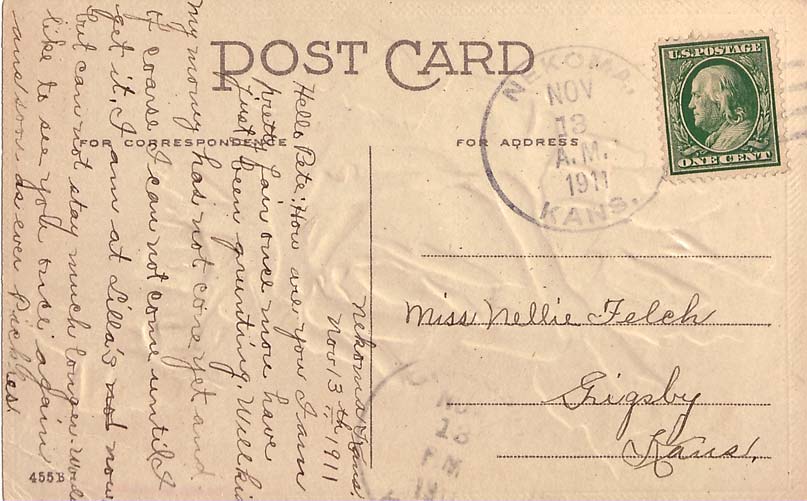 POST CARD
FOR CORRESPONDENCE
FOR ADDRESS
NEKOMA,
NOV
13
A.M.
1911
KANS.
U.S. POSTAGE
ONE CENT
Nekoma Kans.
Nov 13th 1911
Hello Pete: How are you I am
pretty fair once more have
just been grunting. Well ki
my money has not come yet and
of coarse I can not come until I
get it. I am at Lilla's now
but can not stay much longer. would
like to see you once again
and soon. as ever
Miss Nellie Felch
Grigsby
Kans.
455B